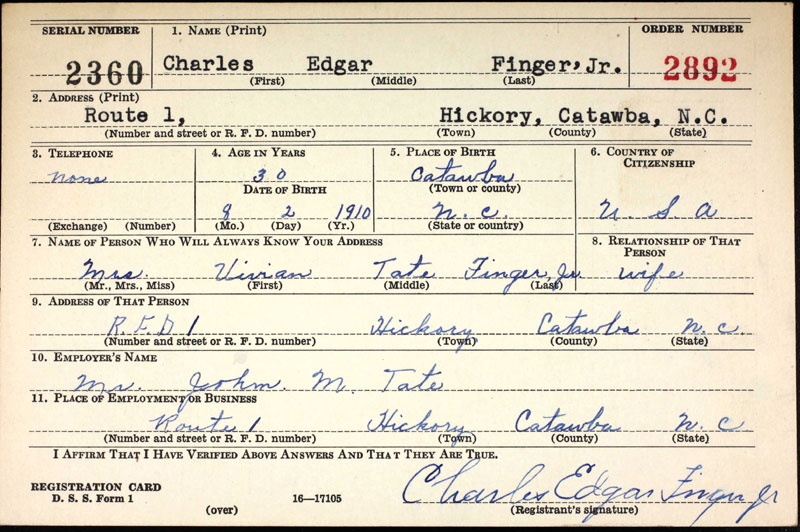 SERIAL NUMBER 1. NAME (Print) ORDER NUMBER
2360 Charles Edgar Finger, Jr. 2892
(First) (Middle) (Last)
2. ADDRESS (Print)
Route 1, Hickory, Catawba, N.C.
(Number and street or R. F. D. number) (Town) (County) (State)
3. TELEPHONE 4. AGE IN YEARS 5. PLACE OF BIRTH 6. COUNTRY OF CITIZENSHIP
none 30 Catawba
DATE OF BIRTH (Town or county)
8 2 1910 N. C. U. S A
(Exchange) (Number) (Mo.) (Day) (Yr.) (State or country)
7. NAME OF PERSON WHO WILL ALWAYS KNOW YOUR ADDRESS 8. RELATIONSHIP OF THAT PERSON
Mrs. Vivian Tate Finger, Jr wife
(Mr., Mrs., Miss) (First) (Middle) (Last)
9. ADDRESS OF THAT PERSON
R.F.D 1 Hickory Catawba N. C.
(Number and street or R. F. D. number) (Town) (County) (State)
10. EMPLOYER'S NAME
Mr. John. M. Tate
11. PLACE OF EMPLOYMENT OR BUSINESS
Route 1 Hickory Catawba N. C
(Number and street or R. F. D. number) (Town) (County) (State)
I AFFIRM THAT I HAVE VERIFIED ABOVE ANSWERS AND THAT THEY ARE TRUE.
REGISTRATION CARD
D. S. S. Form 1 (over) 16—17105 Charles Edgar Finger Jr
(Registrant's signature)